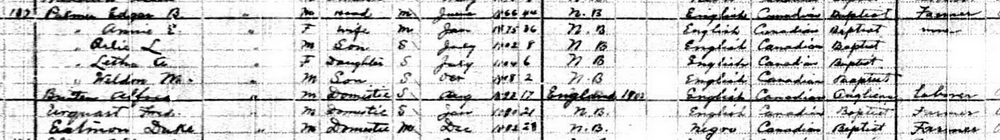 Palmer Edgar B. " M Head M June 1866 44 N.B English Canadian Baptist Farmer
" Annie E " F Wife M Jan 1875 36 N.B. English Canadian Baptist
" L " M Son S July 1902 8 N B English Canadian Baptist
" Letha A " F Daughter S July 1904 6 N B English Canadian Baptist
" Weldon M. " M Son S 1908 2 N.B English Canadian Baptist
Alfred " M Domestic S Aug 17 England English Canadian Anglican Laborer
Urquhart Fred. " M Domestic S Jan 21 N.B. English Canadian Baptist Farmer
Eatmon Duke " M Domestic M Dec 1882 28 N.B. Negro Canadian Baptist Farmer